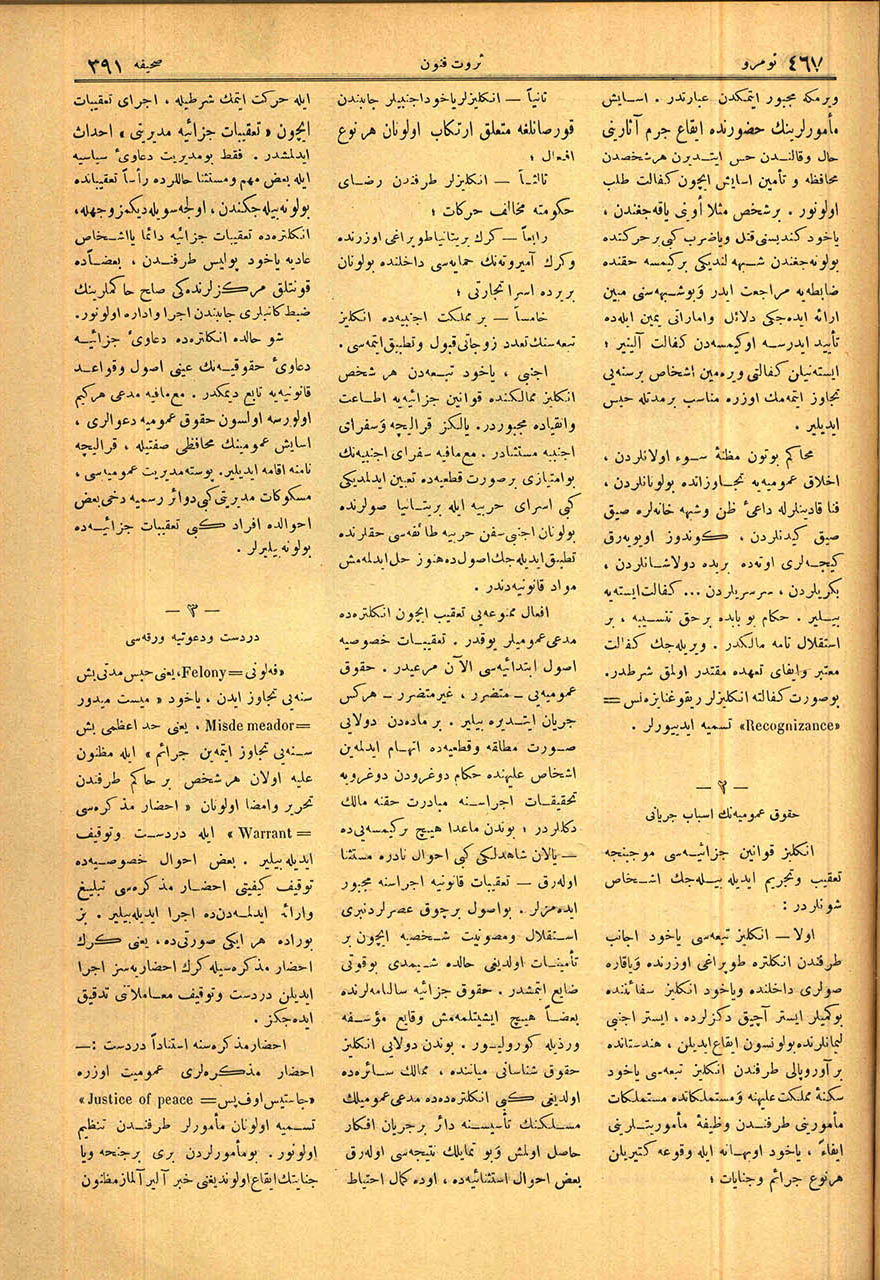 نومرو ٤٦٧
ثروت فنون
صحيفه ٣٩١
ويرمكه مجبور ايتمكدن عبارتدر . اسايش
مأمورلرينك حضورنده ايقاع جرم آثارينى
حال وقالندن حس ايتديرن هر شخصدن
محافظه و تأمين اسايش ايچون كفالت طلب
اولونور . بر شخص مثلا أوينى ياقه جغندن ،
ياخود كنديسنى قتل وياضرب كبى بر حركتده
بولونه جغندن شبهه لنديكى بر كيمسه حقنده
ضابطه يه مراجعت ايدر وبوشبهه سنى مبين
ارائه ايده جكى دلائل واماراتى يمين ايله ده
تأييد ايدرسه اوكيمسه دن كفالت آلينير ؛
ايسته نيلن كفالتى ويره مين اشخاص برسنه يى
تجاوز ايتمه مك اوزره مناسب برمدتله حبس
ايديلير .
محاكم بوتون مظنۀ سوء اولانلردن ،
اخلاق عموميه يه تجاوزانده بولونانلردن ،
فنا قادينلرله داعئ ظن وشبهه خانه لره صيق
صيق كيدنلردن ، كوندوز اويويه رق
كيجه لرى اوته ده بريده دولاشانلردن ،
بكريلردن ، سرسريلردن ... كفالت ايسته يه
بيلير . حكام بو بابده بر حق تنسيبه ، بر
استقلال تامه مالكدر . ويريله جك كفالت
معتبر وايفاى تعهده مقتدر اولمق شرطدر.
بوصورت كفالته انكليزلر ريقوغنايزه نس =
«Recognizance» تسميه ايدييورلر .
— ٢ —
حقوق عموميه نك اسباب جريانى
انكليز قوانين جزائيه سى موجبنجه
تعقيب وتجريم ايديله بيله جك اشخاص
شونلردر :
اولا — انكليز تبعه سى ياخود اجانب
طرفندن انكلتره طوپراغى اوزرنده وياقاره
صولرى داخلنده وياخود انكليز سفائننده
بوكميلر ايستر آچيق دكزلرده ، ايستر اجنبى
ليمانلرنده بولونسون ايقاع ايديلن ، هندستانده
بر آوروپالى طرفندن انكليز تبعه سى ياخود
سكنۀ مملكت عليهنه ومستملكاتده مستملكات
مأمورينى طرفندن وظيفۀ مأموريتلرينى
ايفاءً ، ياخود اوبهانه ايله وقوعه كتيريلن
هرنوع جرائم وجنايات ؛
ثانياً — انكليزلر ياخود اجنبيلر جانبندن
قورصانلغه متعلق ارتكاب اولونان هر نوع
افعال ؛
ثالثاً — انكليزلر طرفندن رضاى
حكومته مخالف حركات ؛
رابعاً — كرك بريتانيا طوپراغى اوزرنده
وكرك آميروته نك حمايه سى داخلنده بولونان
بر يرده اسرا تجارتى ؛
خامساً — بر مملكت اجنبيه ده انكليز
تبعه سنك تعدد زوجاتى قبول وتطبيق ايتمه سى.
اجنبى ، ياخود تبعه دن هر شخص
انكليز ممالكنده قوانين جزائيه يه اطاعت
وانقياده مجبوردر. يالكز قراليچه وسفراى
اجنبيه مستثنادر . مع مافيه سفراى اجنبيه نك
بوامتيازى بر صورت قطعيه ده تعيين ايدلمديكى
كبى اسراى حربيه ايله بريتانيا صولرنده
بولونان اجنبى سفن حربيه طائفه سى حقلرنده
تطبيق ايديله جك اصول ده هنوز حل ايدلمه مش
مواد قانونيه دندر .
افعال ممنوعه يى تعقيب ايچون انكلتره ده
مدعى عموميلر يوقدر . تعقيبات خصوصيه
اصول ابتدائيه سى الآن مرعيدر . حقوق
عموميه يى ـ متضرر ، غير متضرر ـ هركس
جريان ايتديره بيلير . بر ماده دن دولايى
صورت مطلقه وقطعيه ده اتهام ايدلمه ين
اشخاص عليهنده حكام دوغرودن دوغرويه
تحقيقات اجراسنه مبادرت حقنه مالك
دكللردر ؛ بوندن ماعدا هيچ بر كيمسه يى ده
— يالان شاهدلكى كبى احوال نادره مستثنا
اوله رق — تعقيبات قانونيه اجراسنه مجبور
ايده مزلر . بواصول برچوق عصرلردنبرى
استقلال ومصونيت شخصيه ايچون بر
تأمينات اولديغى حالده شيمدى بوقوتى
ضايع ايتمشدر . حقوق جزائيه سالنامه لرنده
بعضاً هيچ ايشيتلمه مش وقايع مؤسفه
ورذيله كورولييور . بوندن دولايى انكليز
حقوق شناسانى مياننده ، ممالك سائره ده
اولديغى كبى انكلتره ده ده مدعى عموميلك
مسلكنك تأسيسنه دائر بر جريان افكار
حاصل اولمش وبو تمايلك نتيجه سى اوله رق
بعض احوال استثنائيه ده ، اوده كمال احتياط
ايله حركت ايتمك شرطيله ، اجراى تعقيبات
ايچون « تعقيبات جزائيه مديريتى » احداث
ايدلمشدر . فقط بومديريت دعاوئ سياسيه
ايله بعض مهم ومستثنا حاللرده رأساً تعقيباتده
بولونه بيله جكندن ، اولجه سويله ديكمز وجهله،
انكلتره ده تعقيبات جزائيه دائما يا اشخاص
عاديه ياخود پوليس طرفندن ، بعضاً ده
قونتلق مركزلرنده كى صلح حاكملرينك
ضبط كاتبلرى جانبندن اجرا واداره اولونور.
شو حالده انكلتره ده دعاوئ جزائيه
دعاوئ حقوقيه نك عينى اصول وقواعد
قانونيه يه تابع ديمكدر . مع مافيه مدعى هركيم
اولورسه اولسون حقوق عموميه دعوالرى ،
اسايش عمومينك محافظى صفتيله ، قراليچه
نامنه اقامه ايديلير. پوسته مديريت عموميه سى ،
مسكوكات مديريتى كبى دوائر رسميه دخى بعض
احوالده افراد كبى تعقيبات جزائيه ده
بولونه بيليرلر .
— ٣ —
دردست ودعوتيه ورقه سى
«فه لونى =Felony، يعنى حبس مدتى بش
سنه يى تجاوز ايدن ، ياخود « ميست ميدور
=Misde meador ، يعنى حد اعظمى بش
سنه يى تجاوز ايتمه ين جرائم » ايله مظنون
عليه اولان هر شخص بر حاكم طرفندن
تحرير وامضا اولونان « احضار مذكره سى
=Warrant » ايله دردست وتوقيف
ايديله بيلير . بعض احوال خصوصيه ده
توقيف كيفيتى احضار مذكره سى تبليغ
وارائه ايدلمه دن ده اجرا ايديله بيلير . بز
بوراده هر ايكى صورتى ده ، يعنى كرك
احضار مذكره سيله كرك احضاريه سز اجرا
ايديلن دردست وتوقيف معاملاتنى تدقيق
ايده جكز .
احضار مذكره سنه استناداً دردست :—
احضار مذكره لرى عموميت اوزره
«جاستيس اوف پيس= Justice of peace»
تسميه اولونان مأمورلر طرفندن تنظيم
اولونور . بومأمورلردن برى بر جنحه ويا
جنايتك ايقاع اولونديغنى خبر آلير آلماز مظنون